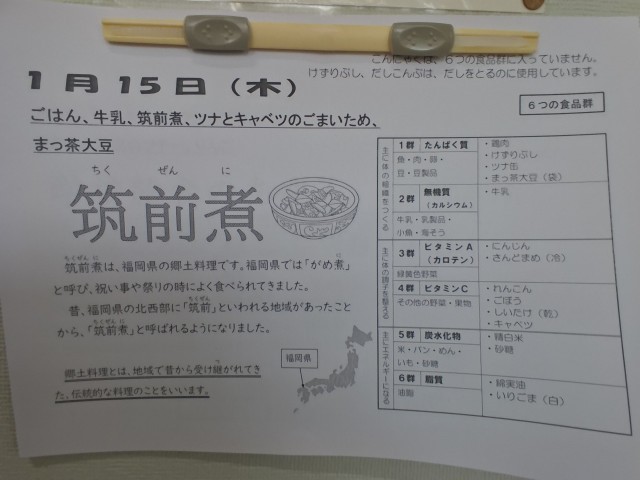 こんにゃくは、6つの食品群に入っていません。
けずりぶし、だしこんぶは、だしをとるのに使用しています。
1月15日（木）
6つの食品群
ごはん、牛乳、筑前煮、ツナとキャベツのごまいため、
まっ茶大豆
ちく ぜん に
筑前煮
筑前煮は、福岡県の郷土料理です。福岡県では「がめ煮」
と呼び、祝い事や祭りの時によく食べられてきました。
昔、福岡県の北西部に「筑前」といわれる地域があったこと
から、「筑前煮」と呼ばれるようになりました。
福岡県
郷土料理とは、地域で昔から受け継がれてき
た、伝統的な料理のことをいいます。
主に体の組織をつくる
1群 たんぱく質
魚・肉・卵・
豆・豆製品
・鶏肉
・けずりぶし
・ツナ缶
・まっ茶大豆（袋）
2群 無機質
（カルシウム）
牛乳・乳製品・
小魚・海そう
・牛乳
主に体の調子を整える
3群 ビタミンA
（カロテン）
緑黄色野菜
・にんじん
・さんどまめ（冷）
4群 ビタミンC
その他の野菜・果物
・れんこん
・ごぼう
・しいたけ（乾）
・キャベツ
主にエネルギーになる
5群 炭水化物
米・パン・めん・
いも・砂糖
・精白米
・砂糖
6群 脂質
油脂
・綿実油
・いりごま（白）